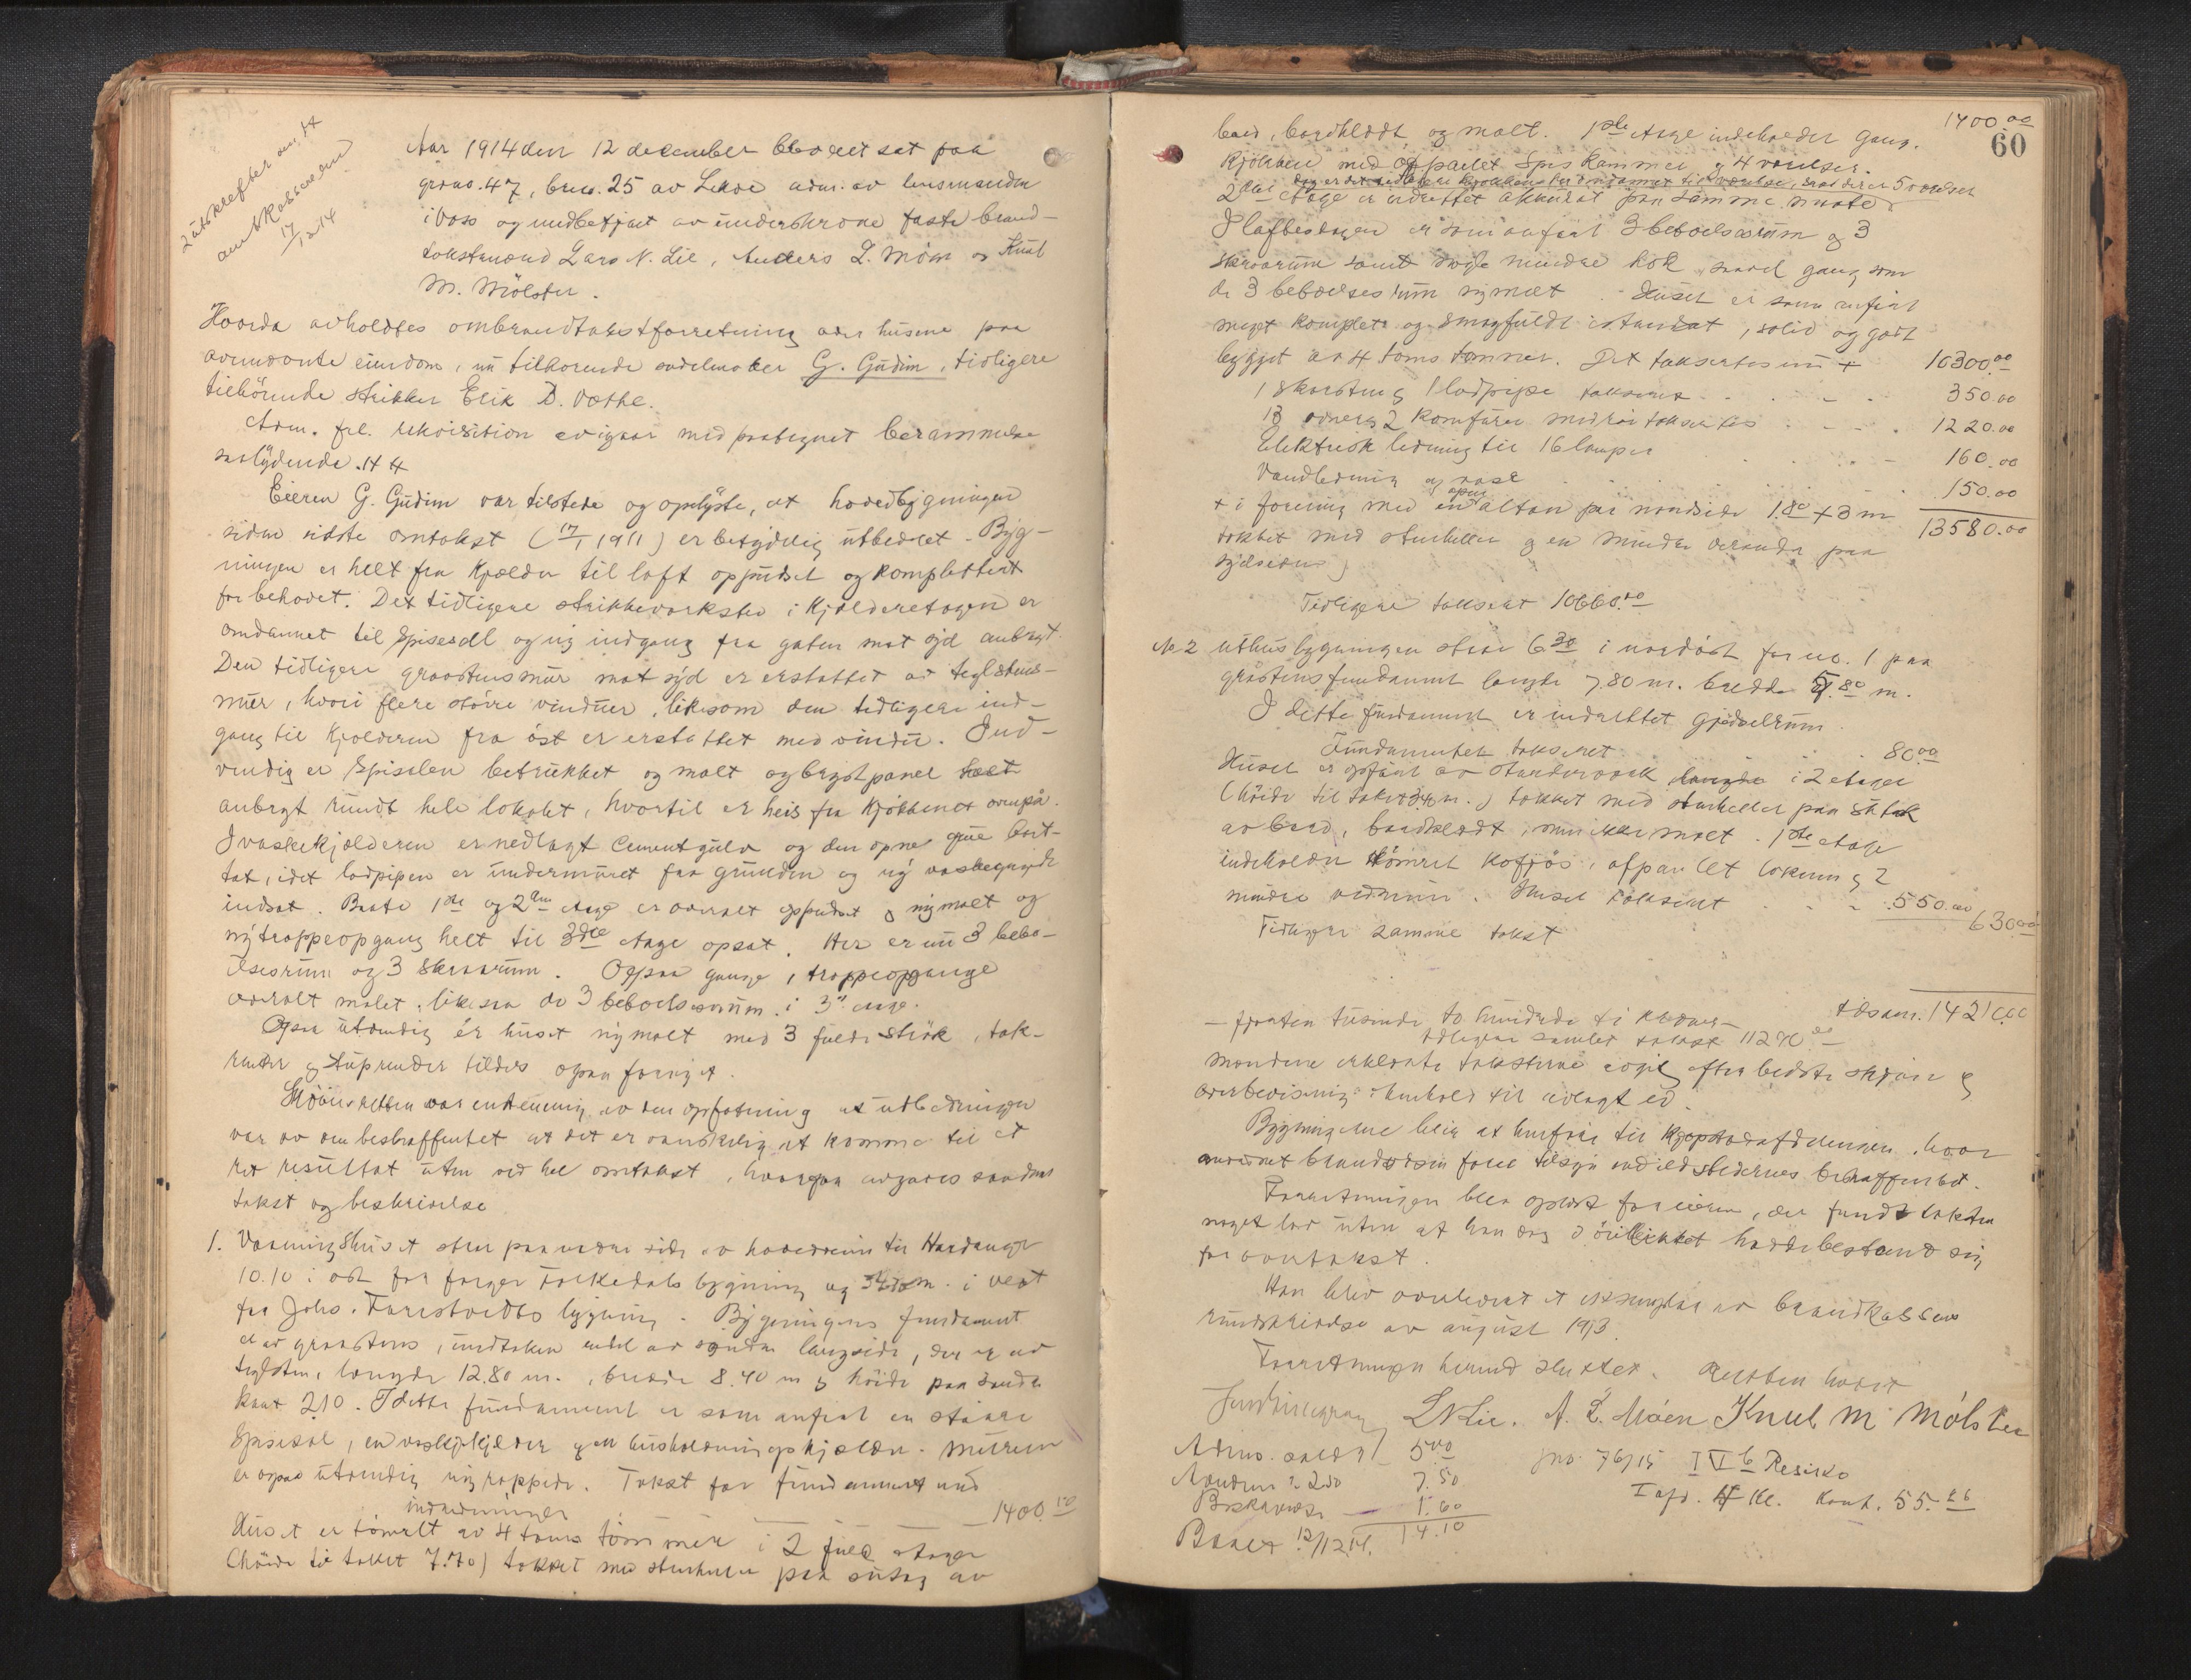 2 utskrefter sendt
amtskassereren
17/12 14
Aar 1914 den 12 december blev ret sat paa
grno. 47, brno. 25 av Lekve adm. av lensmanden
i Voss og medbetjent av underskrevne faste brand-
takstmænd Lars N. Lie, Anders L. Møen og Knut
M. Mölster.
Hvorda avholdtes ombrandtakstforretning over husene paa
ovennævnte eiendom, nu tilhörende sadelmaker G. Gudim, tidligere
tilhörende strikker Erik D. Væthe.
Adm. frl. rekvisition avigaar med paategnet berammelse
saalydende. H 4
Eieren G. Gudim var tilstede og oplyste, at hovedbygningen
siden sidste omtakst (17/1 1911) er betydelig utbedret. Byg-
ningen er helt fra Kjælder til loft oppudset og komplettert
for behovet. Det tidligere strikkeverksted i Kjælderetagen er
omdannet til Spisesal og ny indgang fra gaten mot syd anbragt.
Den tidligere graastensmur mot syd er erstattet av teglstens-
mur, hvori flere större vinduer, likesom den tidligere ind-
gang til Kjælderen fra öst er erstattet med vindu. Ind-
vendig er Spisesalen betrukket og malt og brystpanel
anbragt rundt hele lokalet, hvortil er heis fra Kjökkenet ovenpå.
I vaskekjælderen er nedlagt Cementgulv og den opne grue bort-
tat, idet lodpipen er undermuret fra grunden og ny vaskegryde
indsat. Baade 1ste og 2den etage er overalt oppudset og nymalt og
ny trappeopgang helt til 3die etage opsat. Her er nu 3 bebo-
elsesrum og 3 Skraarum. Ogsaa gange, trappeopgange
overalt malet, likesaa de 3 beboelsesrum i 3" etage.
Ogsaa utvendig er huset nymalt med 3 fulde strök, tak-
render og stuprender tildels ogsaa fornyet.
Skjönsretten var enstemmig av den opfatning at utbedringen
var av den beskaffenhet at det er vanskelig at komme til et
ret resultat uten ved hel omtakst, hvorpaa avgaves saadan
takst og beskrivelse
1. Vaaningshuset staar paa nedre side av hovedveien til Hardanger
10.10 i öst for farger Torkedals bygning og m. i vest
fra Johs. Farestveits bygning. Bygningens fundament
er av graasten, undtaken endel av söndre langside, der er av
teglsten, længde 12.80 m., bredde 8.40 m og höide paa söndre
kant 2.10. I dette fundament er som anfört en större
Spisesal, en vaskekjælder og en husholdningskjælder. Muren
er ogsaa utvendig ny rappede. Takst for fundament med
indredninger — 1400.00
Huset er tömret av 4 toms tömmer i 2 fulde etager
(höide til taket 7.70) tækket med stenheller paa sutag av
1400.00
60
bord, bordklædt og malt. 1ste etage indeholder Gang.
Kjökken med afpanlet Spis Kammer og 4 værelser.
dog er det tidligere kjökken her omdannet til værelse, saa der er 5 værelser
2den etage er indrettet akkurat paa samme maate
I loftsetagen er som anfört 3 beboelsesrum og 3
skraarum samt mindre kot, saavel gang som
de 3 beboelsesrum nymalt. Huset er som anfört
meget komplet og smagfuldt istandsat, solid og godt
bygget av 4 toms tömmer. Det takseres nu + 10300.00
1 Skorsten og 1 lodpipe takseres . . . 350.00
13 ovner og 2 komfurer med rör takseres . . . 1220.00
Elektrisk ledning til 16 lamper . . . 160.00
Vandledning og vask . . . 150.00
+ i forening med en åpen altan på nordside 1.80 + 3 m 13580.00
tækket med stenheller og en mindre veranda paa
sydsiden)
Tidligere taksert 10660.00
No 2 uthusbygningen staar 6.30 i nordöst for no. 1 paa
gråstensfundament længde 7.80 m. bredde 5.80 m.
I dette fundament er indrettet gjödselrum.
Fundamentet taksert . . . 80.00
Huset er opfört av standerverk i 2 etager
(höide til taket 3.40 m.) tækket med stenheller paa sutak
av bord, bordklædt, men ikke malt. 1ste etage
indeholder tömret kofjös, afpanlet lokum og 2
mindre vedrum. Huset taksert . . . 550.00
630.00
Tidligere samme takst
tilsam. 14210.00
— fjorten tusinde to hundrede ti kroner —
tidligere samlet takst 11290.00
Mændene erklærte taksterne avgit efter bedste skjön og
overbevisning i henhold til avlagt ed.
Bygningene blir at henföre til Kjöpstadafdelingen, hvor
anordnet brandvæsen förer tilsyn med ildstedernes beskaffenhet.
Forretningen blev oplæst for eieren, der fandt taksten
noget lav uten at han dog i öieblikket hadde bestemt sig
for overtakst.
Han blev overleveret et eksemplar av brandkassens
rundskrivelse av august 1913.
Forretningen hermed sluttet. Retten hævet
L N Lie. A. L. Möen Knut M Mölster
Adm. 5.00
Mændene à 2.50 7.50
Beskrivelse — 1.60
14.10
Betalt 12/12 14.
jno. 76/15 I VI b Resiko
I afd. 4 Kl. Kont. 55.26